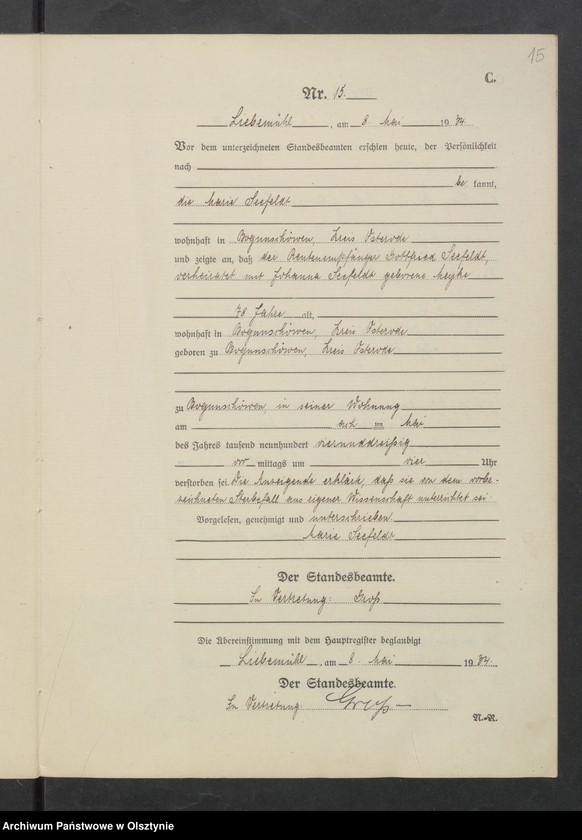 15
C.
Nr. 15.
Liebemühl, am 8 Mai 1934.
Vor dem unterzeichneten Standesbeamten erschien heute, der Persönlichkeit
nach
be kannt,
die Marie Seefeldt
wohnhaft in Bogunschöwen, Kreis Osterode
und zeigte an, daß der Rentenempfänger Gottfried Seefeldt,
verheiratet mit Johanna Seefeldt geborene
78 Jahre alt,
wohnhaft in Bogunschöwen, Kreis Osterode
geboren zu Bogunschöwen, Kreis Osterode
zu Bogunschöwen, in seiner Wohnung
am acht en Mai
des Jahres tausend neunhundert vierunddreißig
vor mittags um vier Uhr
verstorben sei. Die Anzeigende erklärte, daß sie von dem vorbe-
zeichneten Sterbefall aus eigener Wissenschaft unterrichtet sei.
Vorgelesen, genehmigt und unterschrieben
Marie Seefeldt
Der Standesbeamte.
In Vertretung: Groß
Die Übereinstimmung mit dem Hauptregister beglaubigt
Liebemühl, am 8. Mai 1934.
Der Standesbeamte.
In Vertretung: Groß
N.-R.
Archiwum Państwowe w Olsztynie